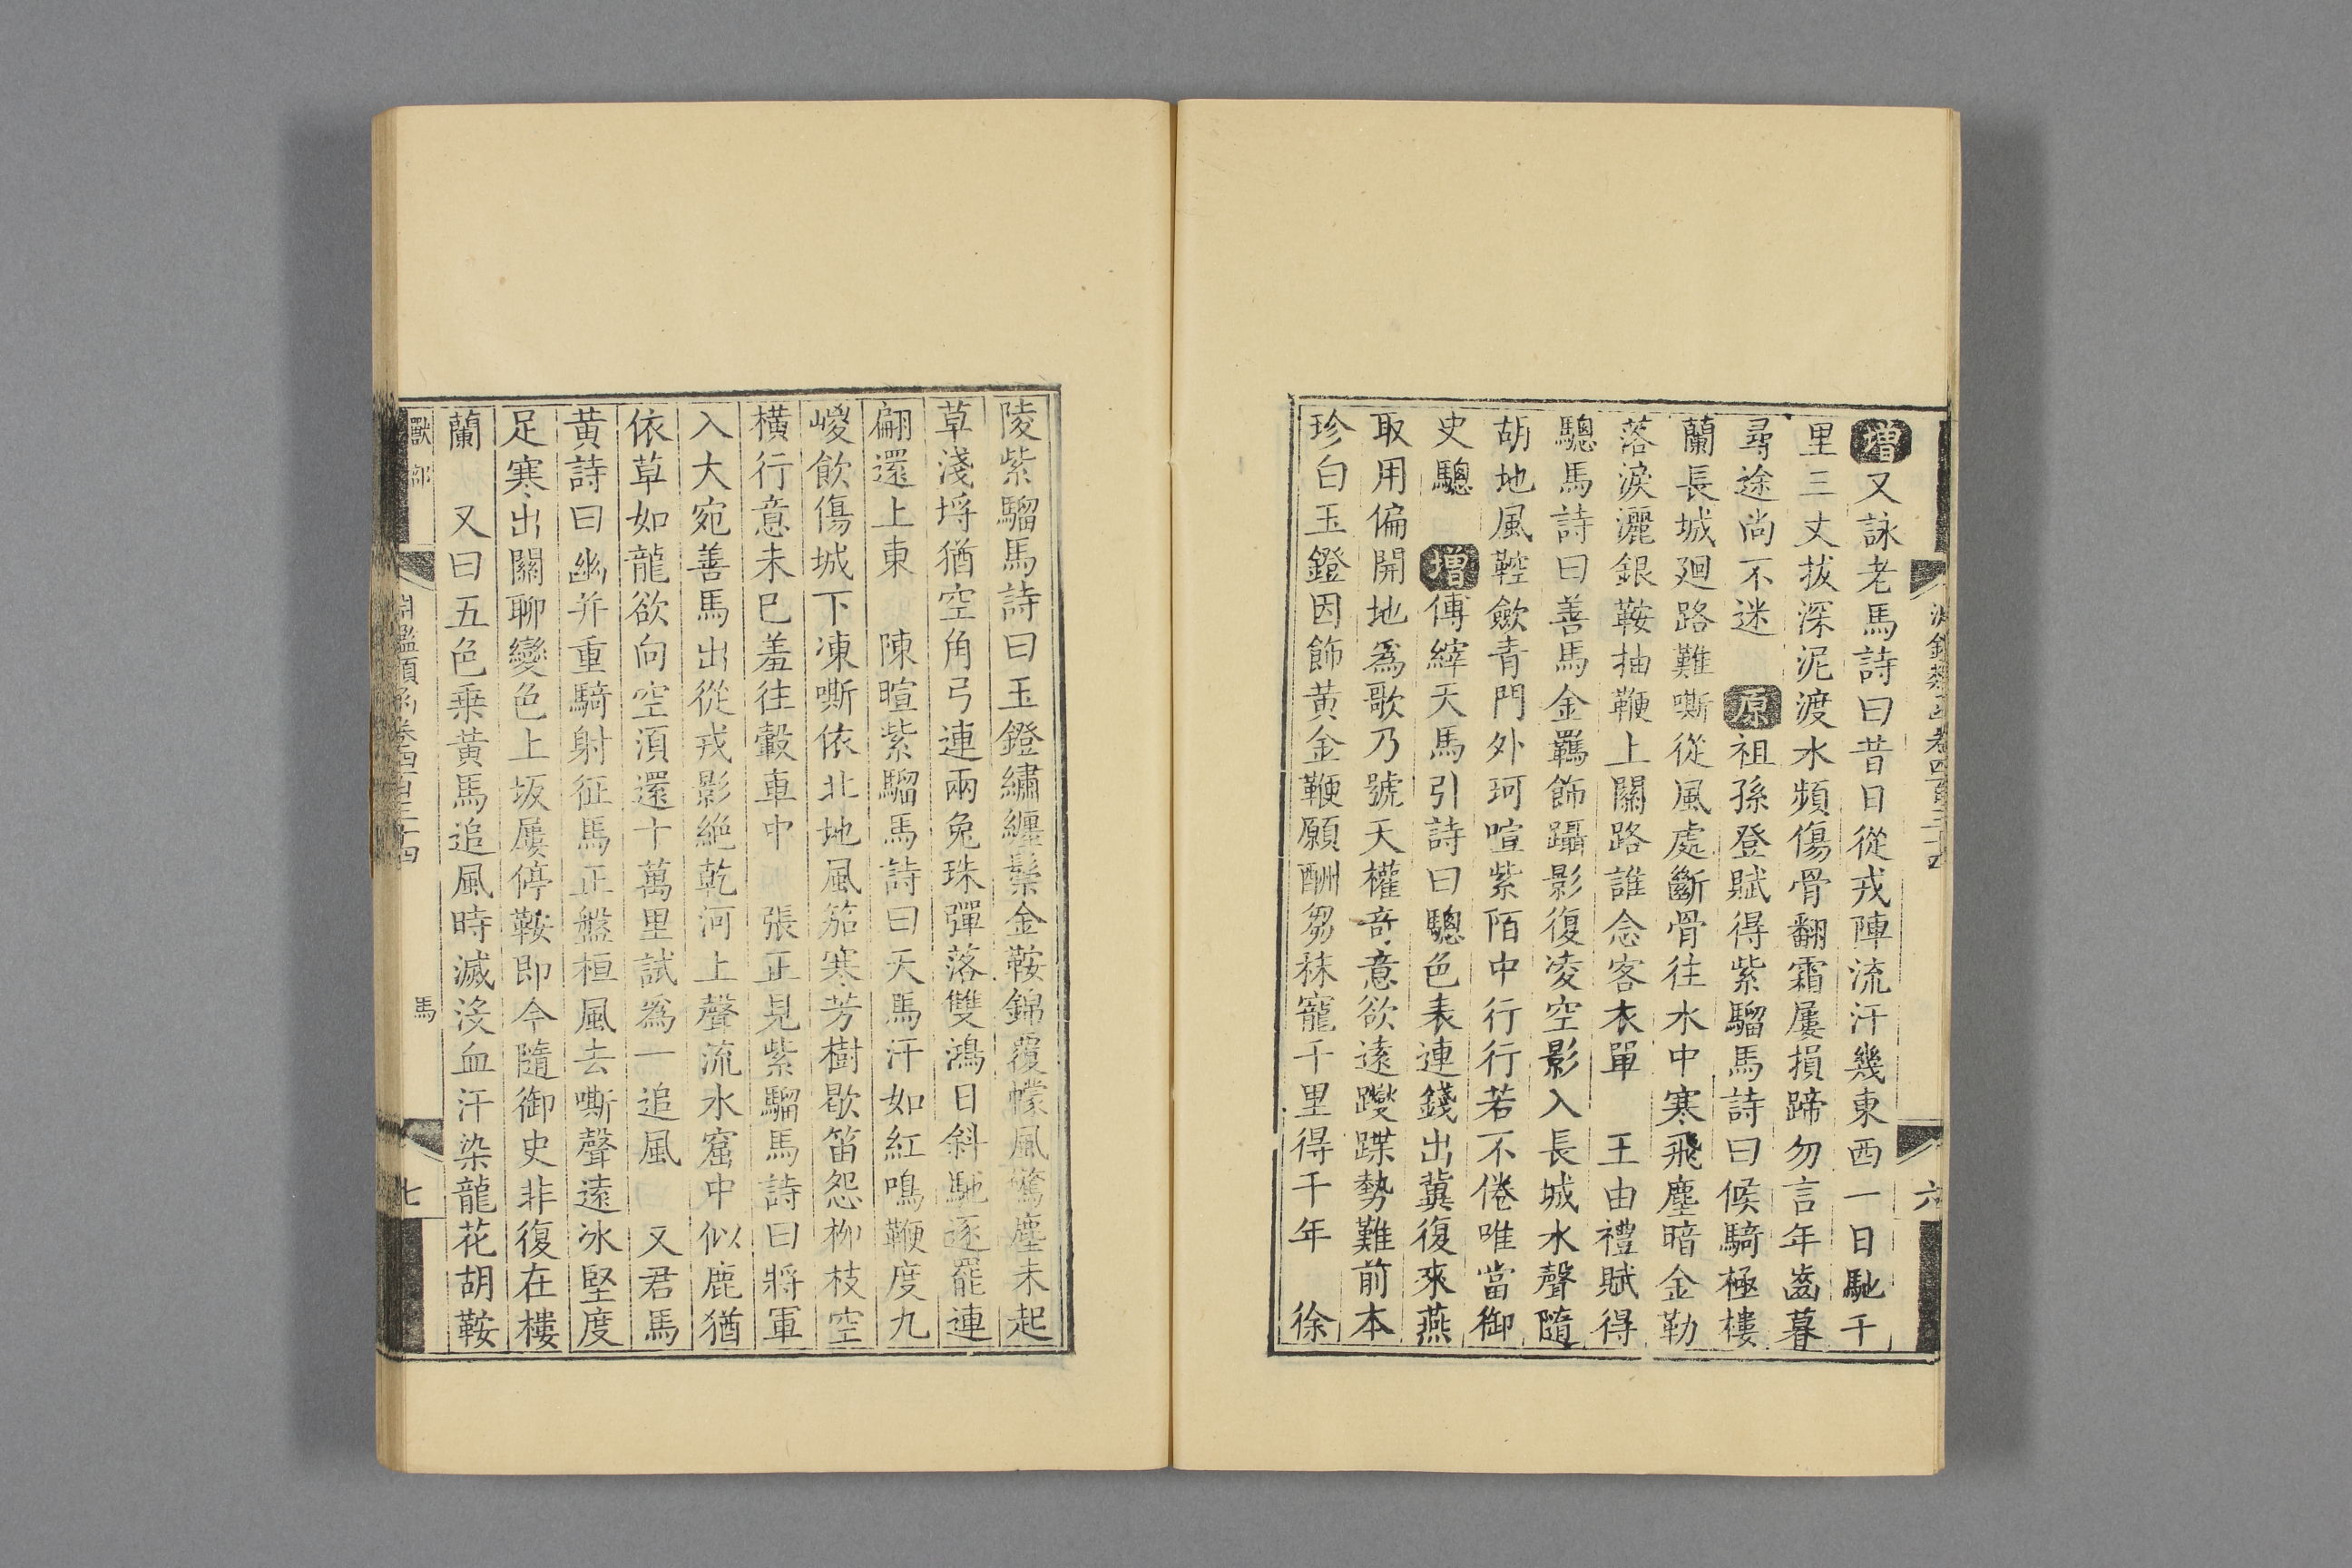 增又詠老馬詩曰昔日從戎陣流汗幾東西一日馳千
里三丈拔深泥渡水頻傷骨翻霜屢損蹄勿言年齒暮
尋途尚不迷 原祖孫登賦得紫騮馬詩曰候騎極樓
蘭長城迴路難嘶從風處斷骨往水中寒飛塵暗金勒
落淚灑銀鞍抽鞭上關路誰念客衣單 王由禮賦得
驄馬詩曰善馬金羈飾躡影復凌空影入長城水聲隨
胡地風鞚歛青門外珂喧紫陌中行行若不倦唯當御
史驄 增傅縡天馬引詩曰驄色表連錢出冀復來燕
取用偏開地爲歌乃號天權奇意欲遠躞蹀勢難前本
珍白玉鐙因飾黃金鞭願酬芻秣寵千里得千年 徐
六
陵紫騮馬詩曰玉鐙繡纏鬃金鞍錦覆幪風驚塵未起
草淺埓猶空角弓連兩兔珠彈落雙鴻日斜馳逐罷連
翩還上東 陳暄紫騮馬詩曰天馬汗如紅鳴鞭度九
嵕飲傷城下凍嘶依北地風笳寒芳樹歇笛怨柳枝空
橫行意未巳羞往轂車中 張正見紫騮馬詩曰將軍
入大宛善馬出從戎影絶乾河上聲流水窟中似鹿猶
依草如龍欲向空湏還十萬里試爲一追風 又君馬
黃詩曰幽并重騎射征馬正盤桓風去嘶聲遠冰堅度
足寒出關聊變色上坂屢停鞍即今隨御史非復在樓
蘭 又曰五色乗黃馬追風時滅沒血汗染龍花胡鞍
獸部
淵鑑類函卷四百三十四
馬
七